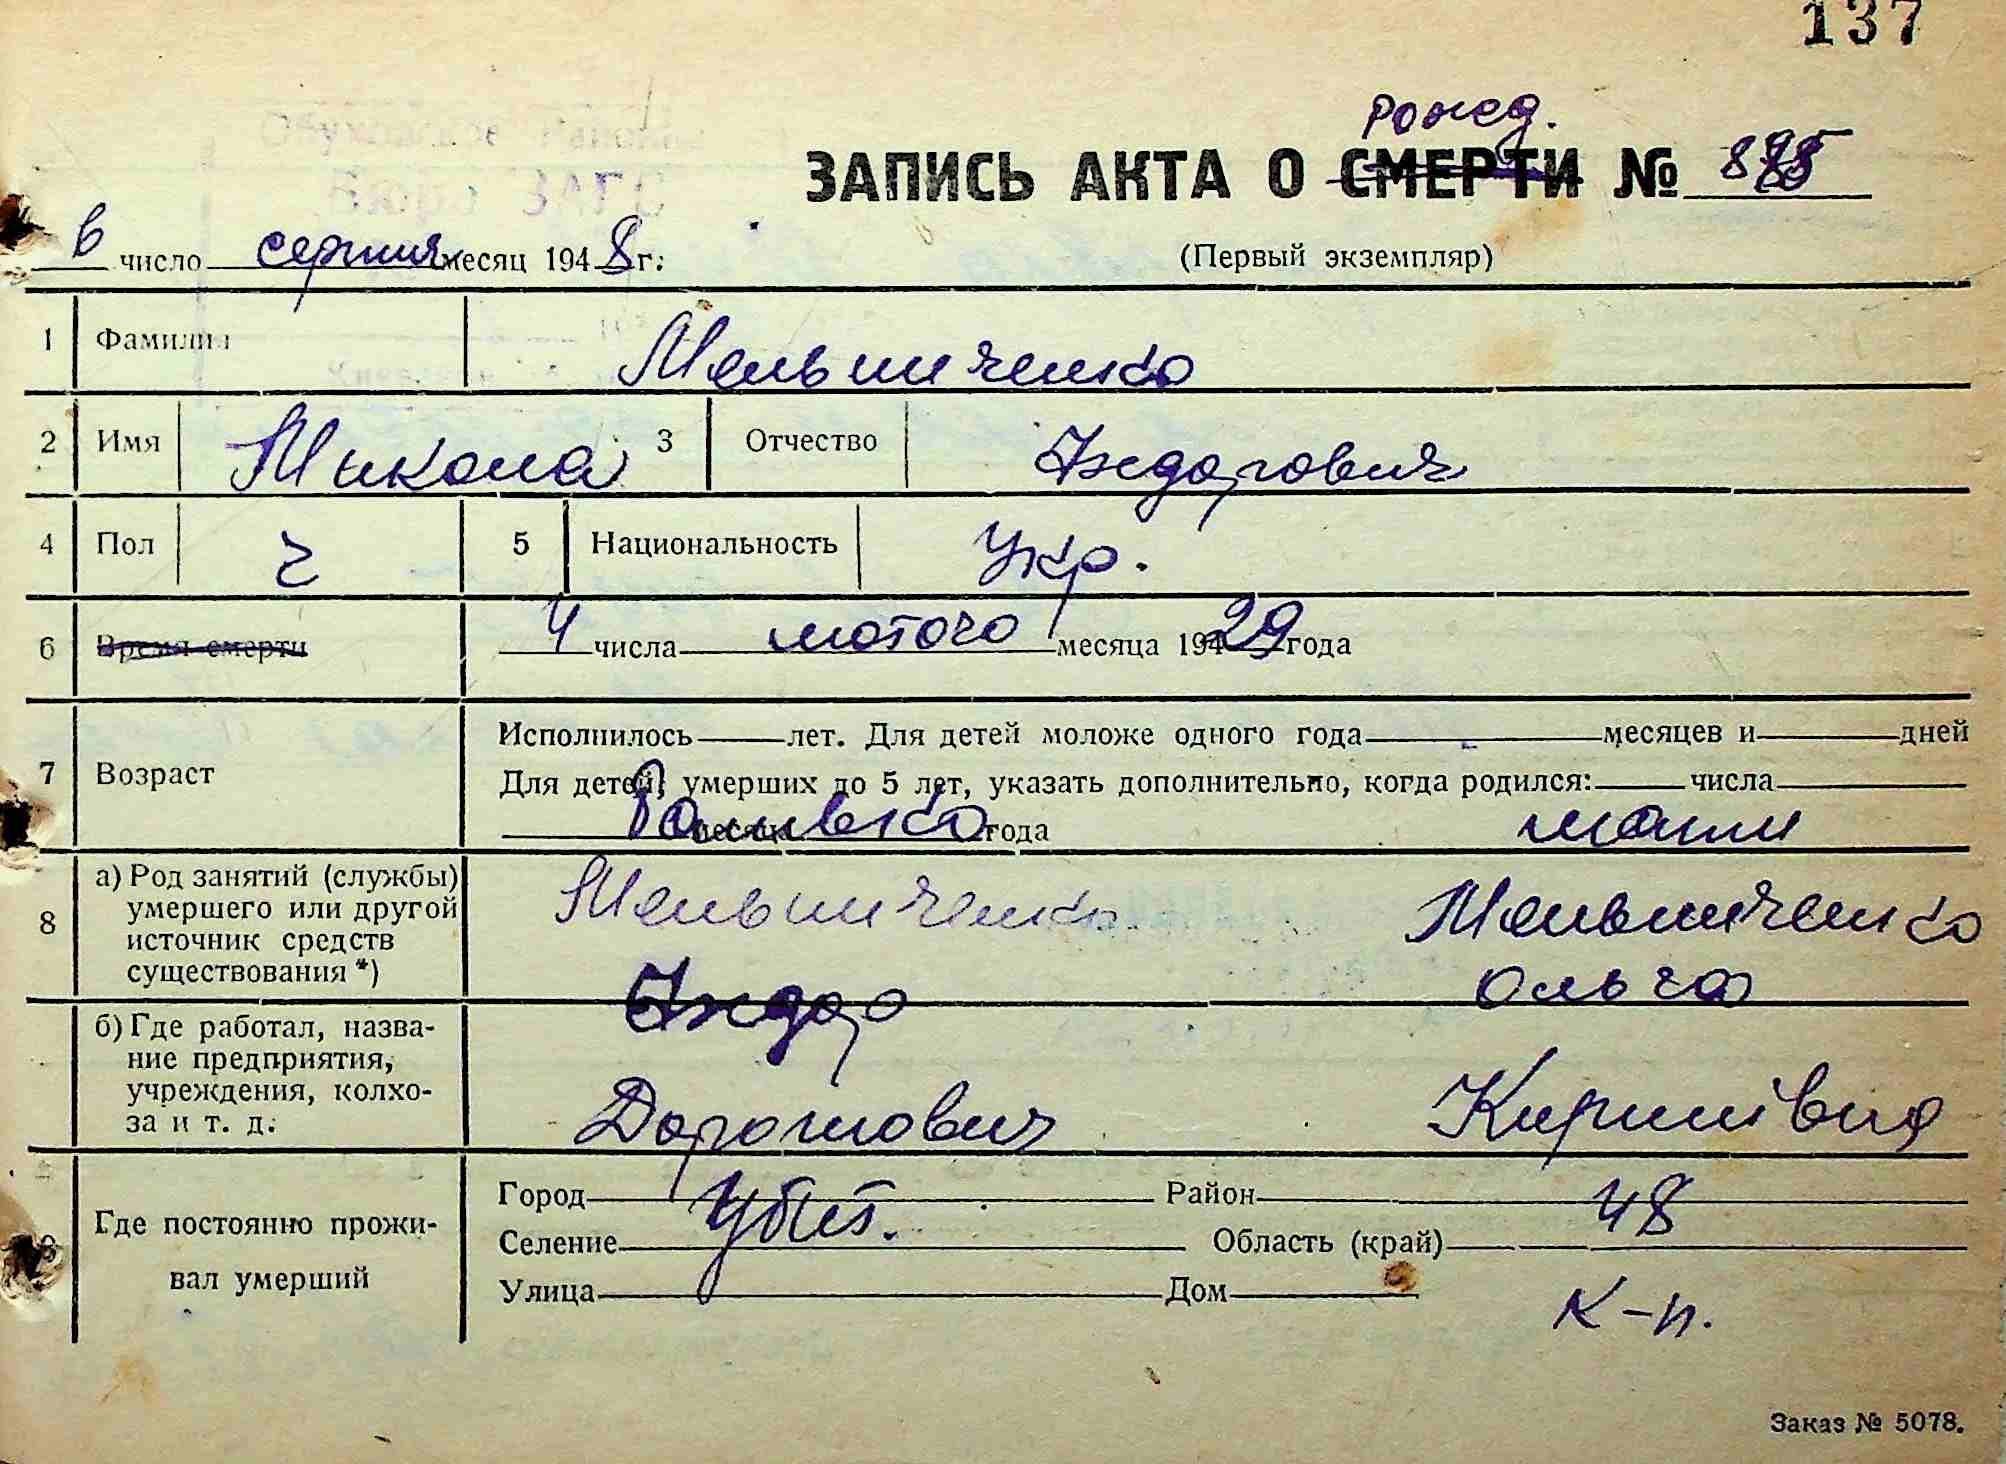 137
Рожд.
ЗАПИСЬ АКТА О СМЕРТИ №
Бюро ЗАГС
6 число серпня месяц 1948 г.
(Первый экземпляр)
1 Фамилия Мельниченко
2 Имя Микола 3 Отчество Федорович
4 Пол ч 5 Национальность Укр.
6 Время смерти 4 числа лютого месяца 1929 года
7 Возраст Исполнилось лет. Для детей моложе одного года месяцев и дней
Для детей, умерших до 5 лет, указать дополнительно, когда родился: числа
месяца года
Батько мати
8 а) Род занятий (службы) умершего или другой источник средств существования *)
Мельниченко Мельниченко
Федор Ольга
б) Где работал, назва-
ние предприятия,
учреждения, колхо-
за и т. д.
Дорошович
Где постоянно прожи-
вал умерший
Город Район 48
Убит.
Селение Область (край)
Улица Дом
к-п.
Заказ № 5078.